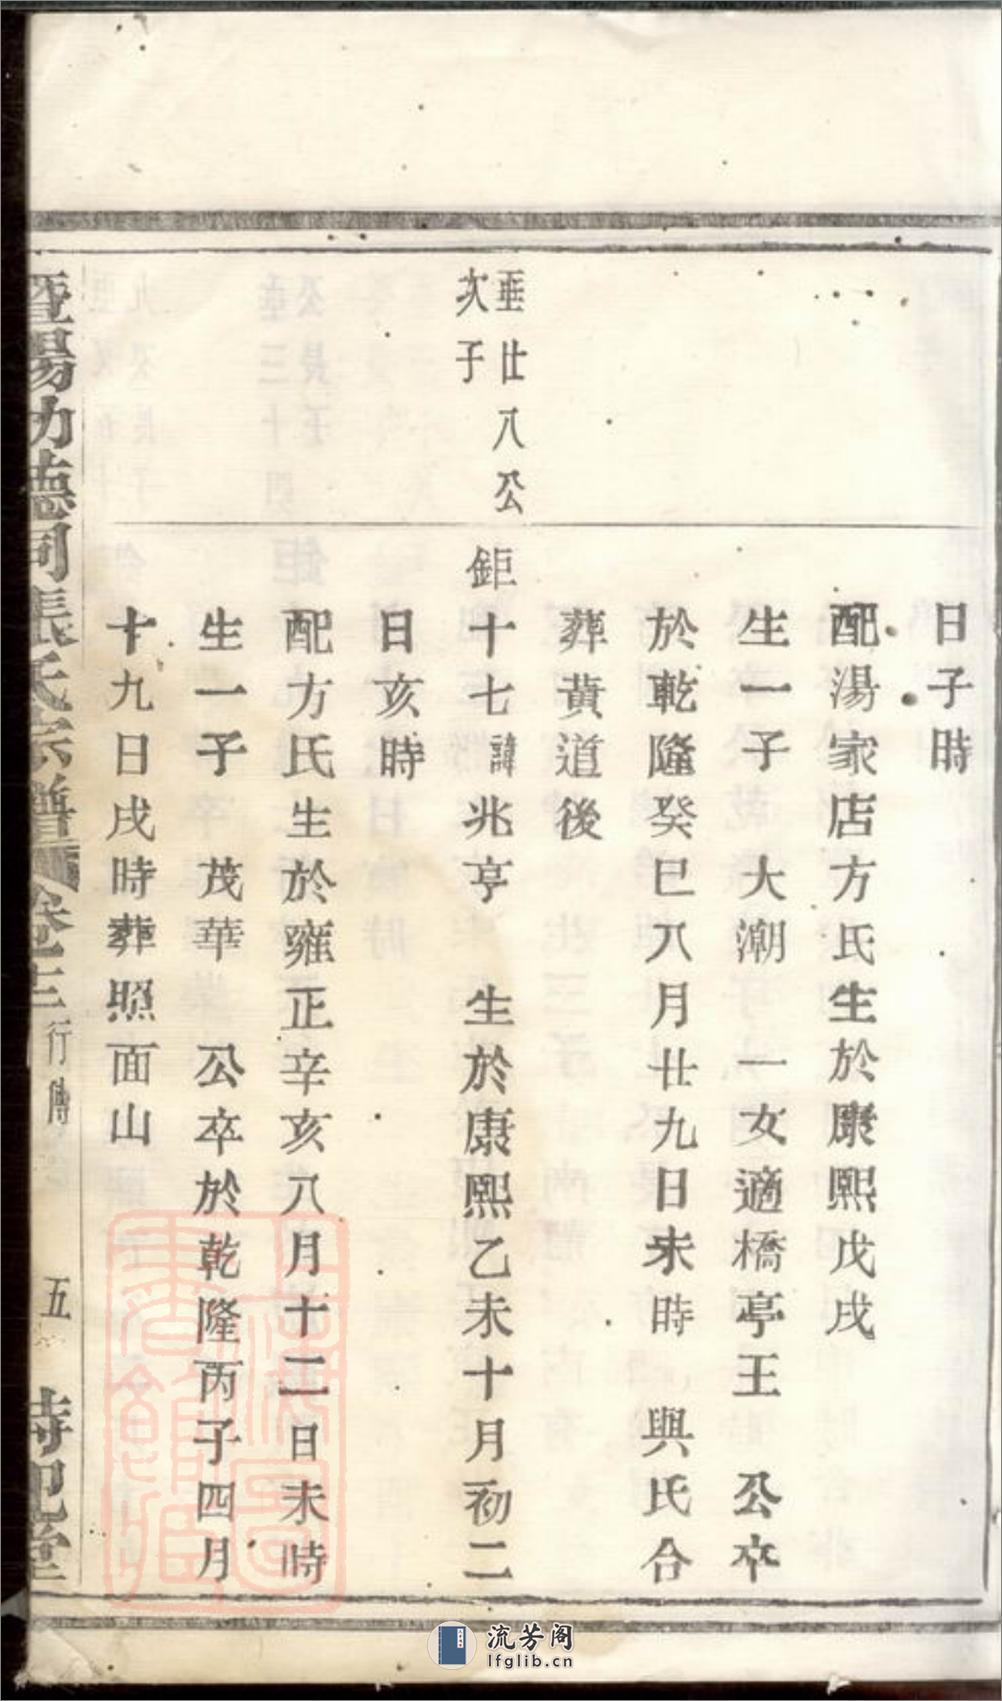 日子時
配湯家店方氏生於康熙戊戌
生一子 大潮 一女適橋亭王 公卒
於乾隆癸巳八月廿九日未時 與氏合
葬黃道後
垂廿八公
次子
鉅十七諱兆亨 生於康熙乙未十月初二
日亥時
配方氏生於雍正辛亥八月十二日未時
生一子 茂華 公卒於乾隆丙子四月
十九日戌時葬照面山
暨陽功德同張氏宗譜
行傳
五
時思堂
流芳阁
lfglib.cn